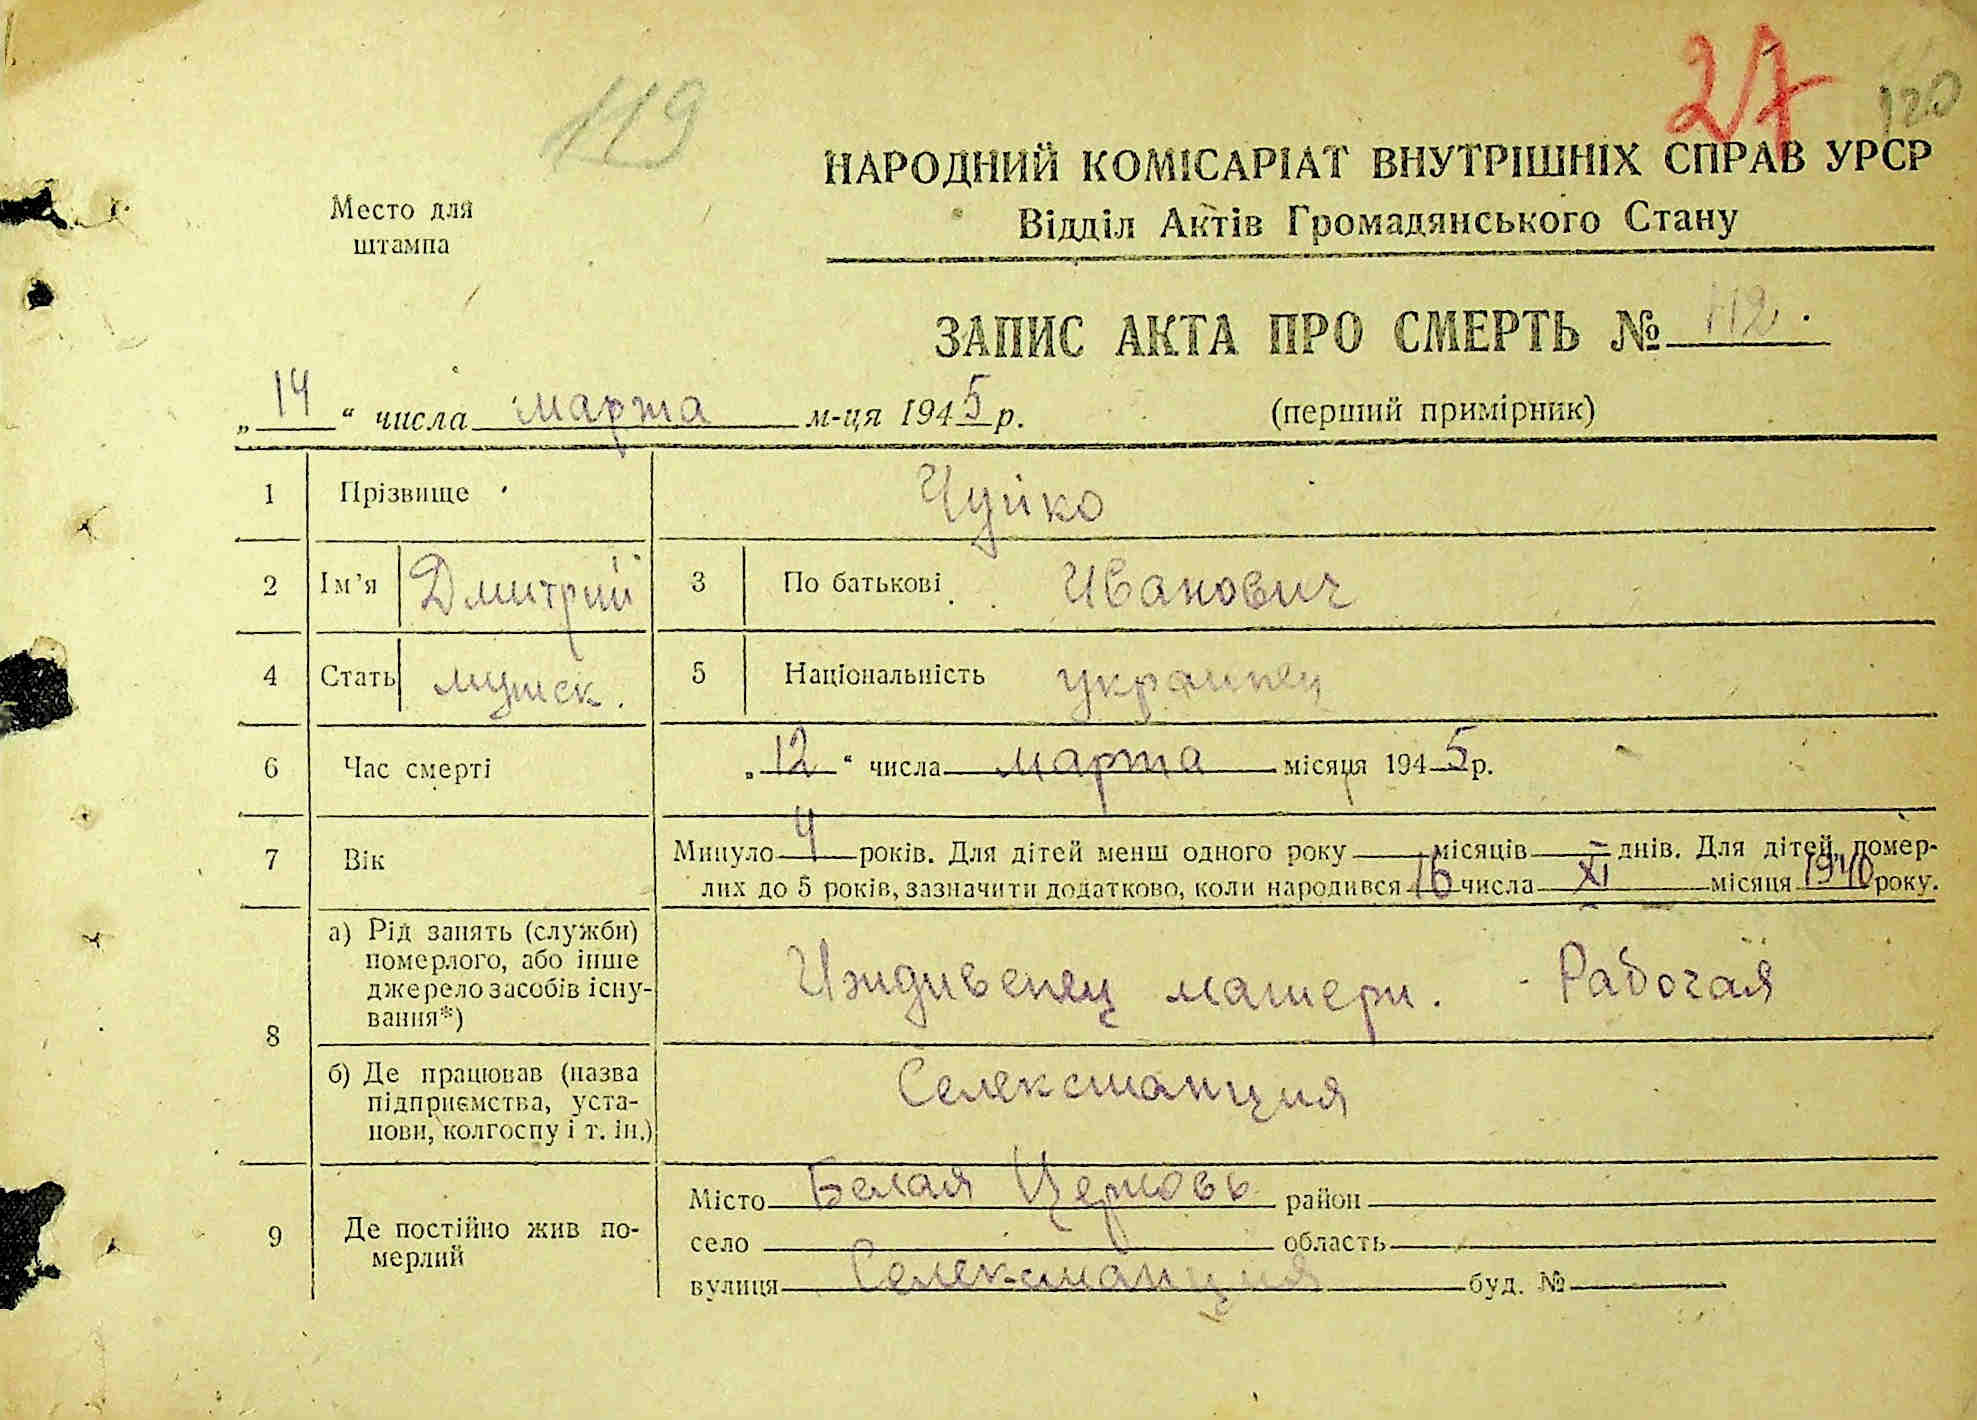 119
27
120
НАРОДНИЙ КОМІСАРІАТ ВНУТРІШНІХ СПРАВ УРСР
Відділ Актів Громадянського Стану
Место для
штампа
ЗАПИС АКТА ПРО СМЕРТЬ № 112.
„14“ числа марта м-ця 1945 р.
(перший примірник)
1 Прізвище Чуйко
2 Ім’я Дмитрий 3 По батькові Иванович
4 Стать мужск. 5 Національність украинец
6 Час смерті „12“ числа марта місяця 1945 р.
7 Вік Минуло 4 років. Для дітей менш одного року — місяців — днів. Для дітей, помер-
лих до 5 років, зазначити додатково, коли народився 16 числа XI місяця 1940 року.
8 а) Рід занять (служби)
померлого, або інше
джерело засобів існу-
вання*)
Иждивенец матери. - Рабочая
б) Де працював (назва
підприємства, уста-
нови, колгоспу і т. ін.)
Селекстанция
9 Де постійно жив по-
мерлий
Місто Белая Церковь район
село область
вулиця Селекстанция буд. №